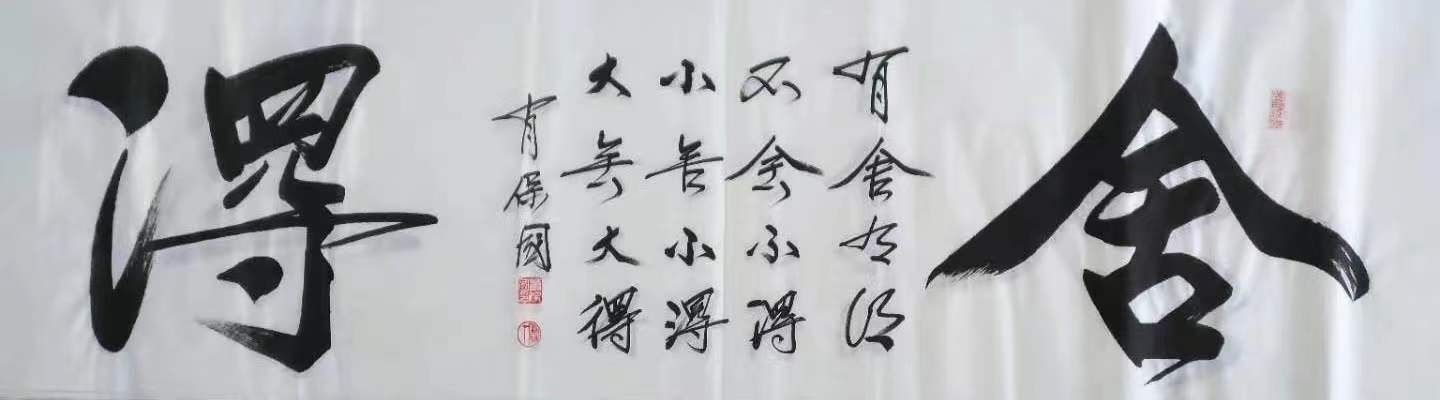 舍
有舍有得
不舍不得
小舍小得
大舍大得
肖保國
得